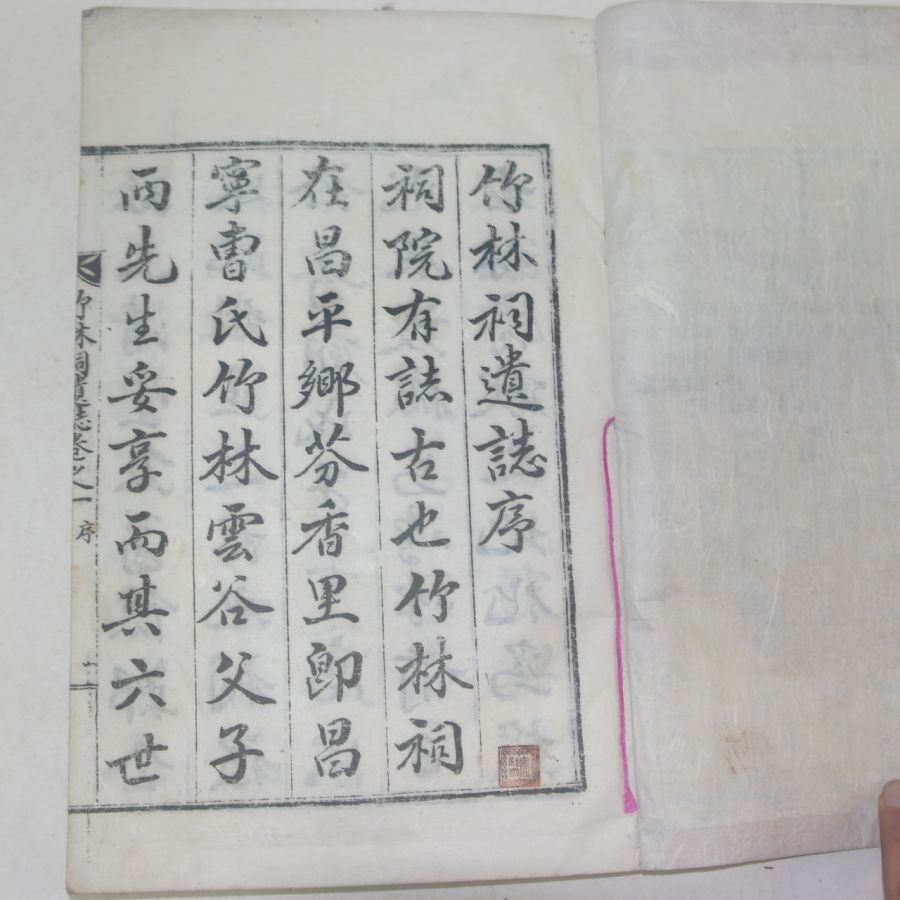 竹林祠遺誌序
祠院有誌古也竹林祠
在昌平鄉芬香里卽昌
寧曺氏竹林雲谷父子
兩先生妥享而其六世
竹林祠遺誌卷之一 序